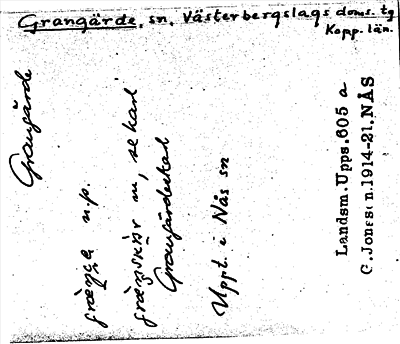 Grangärde, sn, Västerbergslags doms. tg
Kopp. län.
Grangärde
n.p.
m, se kard
Grangärdeskal
Uppt. i Nås sn
Landsm. Upps. 605 a
C. Jones(n.1914-21. NÅS